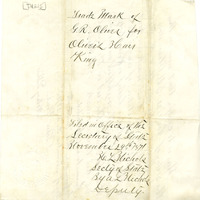 Trade Mark of
G. R. Oliver for
Oliver's Hair
King
Filed in Office of the
Secretary of State
November 29th
H. L. Nichols
Secty of State
By
Deputy